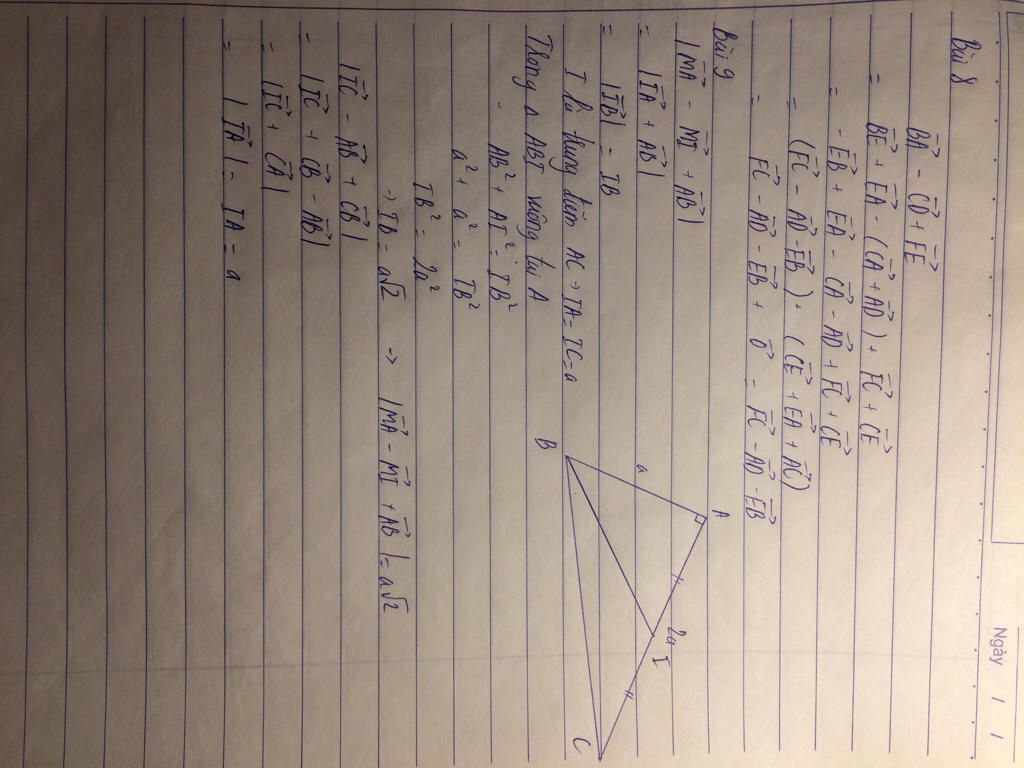 Ngày / /
Bài 8
BA→ - CD→ + FE→
= BE→ + EA→ - (CA→ + AD→) + FC→ + CE→
= - EB→ + EA→ - CA→ - AD→ + FC→ + CE→
= (FC→ - AD→ - EB→) + (CE→ + EA→ + AC→)
= FC→ - AD→ - EB→ + 0→ = FC→ - AD→ - EB→
Bài 9
|MA→ - MI→ + AB→|
= |IA→ + AB→|
= |IB→| = IB
I là trung điểm AC → IA = IC = a
Trong Δ ABI vuông tại A
AB² + AI² = IB²
a² + a² = IB²
IB² = 2a²
→ IB = a√2 → |MA→ - MI→ + AB→| = a√2
|IC→ - AB→ + CB→|
= |IC→ + CB→ - AB→|
= |IC→ + CA→|
= |IA→| = IA = a
A
a
B
2a
I
C